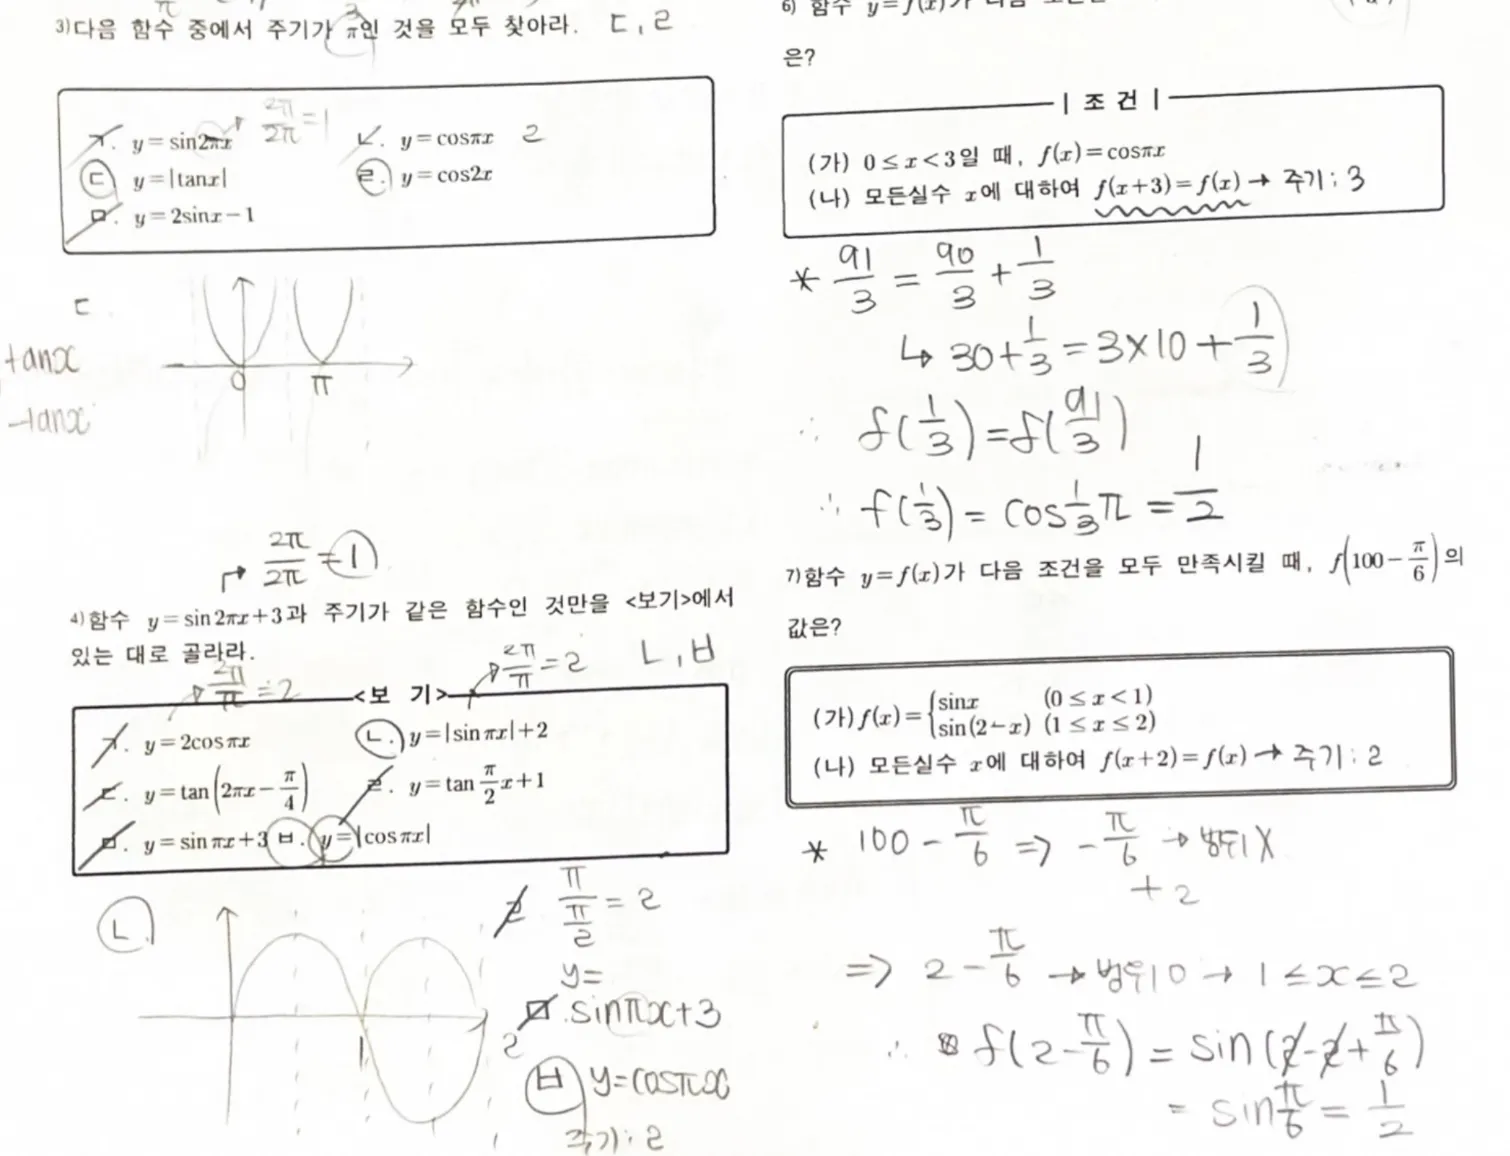 3)다음 함수 중에서 주기가 π인 것을 모두 찾아라. ㄷ, ㄹ
ㄱ. y=sin2πx → 2π/2π=1 ㄴ. y=cosπx 2
ㄷ y=|tanx| ㄹ. y=cos2x
ㅁ. y=2sinx-1
ㄷ.
tanx
-tanx
0 π
→ 2π/2π=1
4)함수 y=sin2πx+3과 주기가 같은 함수인 것만을 <보기>에서
있는 대로 골라라. ㄴ, ㅂ
→ 2π/π=2 → 2π/π=2
<보 기>
ㄱ. y=2cosπx ㄴ. y=|sinπx|+2
ㄷ. y=tan(2πx-π/4) ㄹ. y=tan π/2 x+1
ㅁ. y=sinπx+3 ㅂ. y=|cosπx|
ㄴ.
1 2
ㄹ π/(π/2)=2
y=
ㅁ. sinπx+3
ㅂ y=cosπx
주기: 2
6) 함수 y=f(x)가 다음
은?
| 조 건 |
(가) 0≤x<3일 때, f(x)=cosπx
(나) 모든실수 x에 대하여 f(x+3)=f(x) → 주기: 3
* 91/3 = 90/3 + 1/3
↳ 30+1/3 = 3×10+1/3
∴ f(1/3)=f(91/3)
∴ f(1/3)= cos 1/3 π = 1/2
7)함수 y=f(x)가 다음 조건을 모두 만족시킬 때, f(100-π/6)의
값은?
(가) f(x)={sinx (0≤x<1)
sin(2-x) (1≤x≤2)
(나) 모든실수 x에 대하여 f(x+2)=f(x) → 주기: 2
* 100-π/6 ⇒ -π/6 → 범위 X
+2
⇒ 2-π/6 → 범위 O → 1≤x≤2
∴ f(2-π/6) = sin(2-2+π/6)
= sin π/6 = 1/2